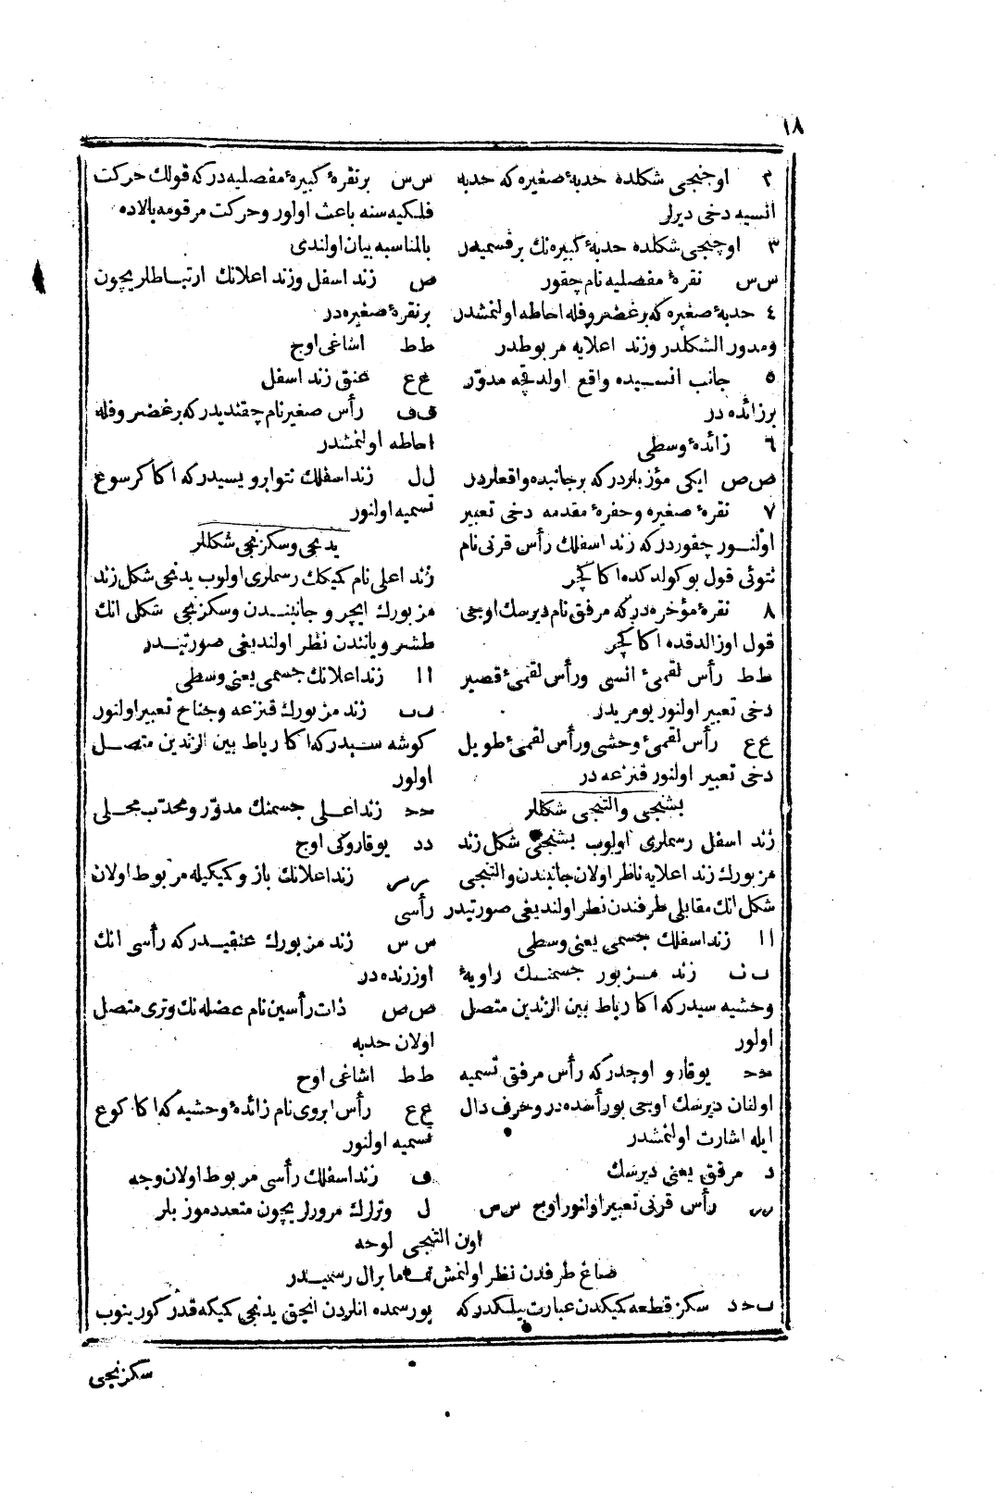 ١٨
٢ اوچنجی شكلده حدبهٔ صغیره كه حدبه
انسیه دخی دیرلر
٣ اوچنجی شكلده حدبهٔ كبیره نك بر قسمیدر
س س نقرهٔ مفصلیه نام چقور
٤ حدبهٔ صغیره كه بر غضروفله احاطه اولنمشدر
ومدور الشكلدر وزند اعلایه مربوطدر
٥ جانب انسیده واقع اولدقچه مدوّر
بر زائده در
٦ زائدهٔ وسطی
ص ص ایكی مؤزبلردر كه بر جانبده واقعلردر
٧ نقرهٔ صغیره وحفرهٔ مقدمه دخی تعبیر
اولنور چقوردر كه زند اسفلك رأس قرنی نام
نتوئی قول بوكولدكده اكا كچر
٨ نقرهٔ مؤخره در كه مرفق نام دیرسك اوجی
قول اوزالدقده اكا كچر
ط ط رأس لقمیٔ انسی ورأس لقمیٔ قصیر
دخی تعبیر اولنور یومریدر
ع ع رأس لقمیٔ وحشی ورأس لقمیٔ طویل
دخی تعبیر اولنور قنزعه در
بشنجی والتنجی شكللر
زند اسفل رسملری اولوب بشنجی شكل زند
مزبورك زند اعلایه ناظر اولان جانبندن والتنجی
شكل انك مقابلی طرفندن نظر اولندیغی صورتیدر
ا ا زند اسفلك جسمی یعنی وسطی
ب ب زند مزبور جسمنك زاویهٔ
وحشیه سیدر كه اكا رباط بین الزندین متصل
اولور
حح یوقارو اوجدر كه رأس مرفق تسمیه
اولنان دیرسك اوجی بوراٰسده در وحرف دال
ایله اشارت اولنمشدر
د مرفق یعنی دیرسك
رر رأس قرنی تعبیر اولنور اوج
س س بر نقرهٔ كبیرهٔ مفصلیه در كه قولك حركت
فلكیه سنه باعث اولور وحركت مرقومه بالاده
بالمناسبه بیان اولندی
ص زند اسفل وزند اعلانك ارتباطلریچون
بر نقرهٔ صغیره در
ط ط اشاغی اوج
ع ع عنق زند اسفل
ف ف رأس صغیر نام چقندیدر كه بر غضروفله
احاطه اولنمشدر
ل ل زند اسفلك نتوابرویسیدر كه اكا كرسوع
تسمیه اولنور
یدنجی وسكزنجی شكللر
زند اعلی نام كمیكك رسملری اولوب یدنجی شكل زند
مزبورك ایچرو جانبندن وسكزنجی شكلی انك
طشرو یانندن نظر اولندیغی صورتیدر
ا ا زند اعلانك جسمی یعنی وسطی
ب ب زند مزبورك قنزعه وجناح تعبیر اولنور
كوشه سیدر كه اكا رباط بین الزندین متصل
اولور
حح زند اعلی جسمنك مدوّر ومحدّب محلی
دد یوقاروكی اوج
رر زند اعلانك بازو كمیكیله مربوط اولان
رأسی
س س زند مزبورك عنقیدر كه رأسی انك
اوزرنده در
ص ص ذات رأسین نام عضله نك وتری متصل
اولان حدبه
ط ط اشاغی اوج
ع ع رأس ابروی نام زائدهٔ وحشیه كه اكا كوع
تسمیه اولنور
ف زند اسفلك رأسی مربوط اولان وجه
س س ل وترلرك مرورلریچون متعدد موزبلر
اون التنجی لوحه
صاغ طرفدن نظر اولنمش تماما بر ال رسمیدر
ب ح د سكز قطعه كمیكدن عبارت بیلكدر كه بو رسمده انلردن انجق یدنجی كمیكه قدر كورینوب
سكزنجی